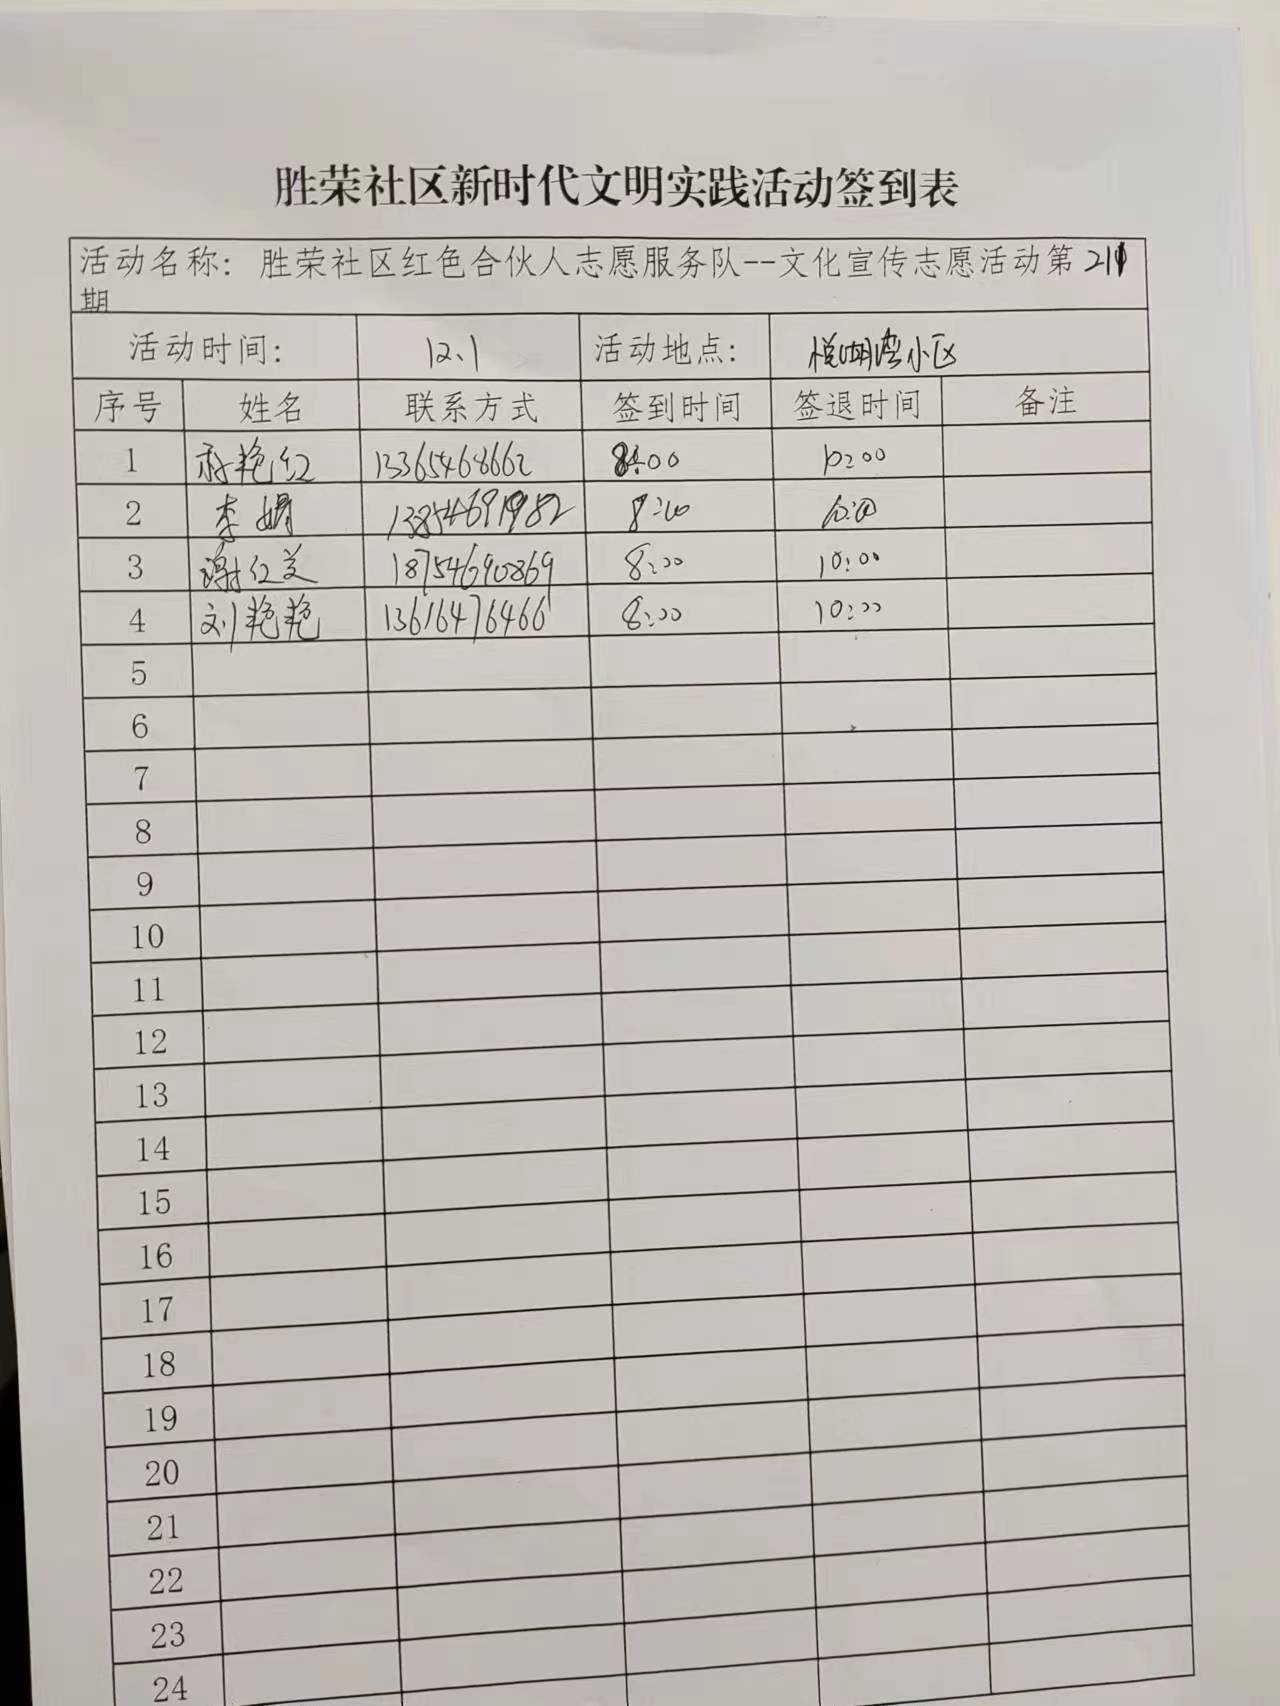 胜荣社区新时代文明实践活动签到表
活动名称：胜荣社区红色合伙人志愿服务队--文化宣传志愿活动第211
期
活动时间： 12.1 活动地点： 悦湖湾小区
序号 姓名 联系方式 签到时间 签退时间 备注
1 艳红 13365468662 8:00 10:00
2 李娟 13854691982 8:00 10:00
3 谢红美 18754690869 8:00 10:00
4 刘艳艳 13616476466 8:00 10:00
5
6
7
8
9
10
11
12
13
14
15
16
17
18
19
20
21
22
23
24